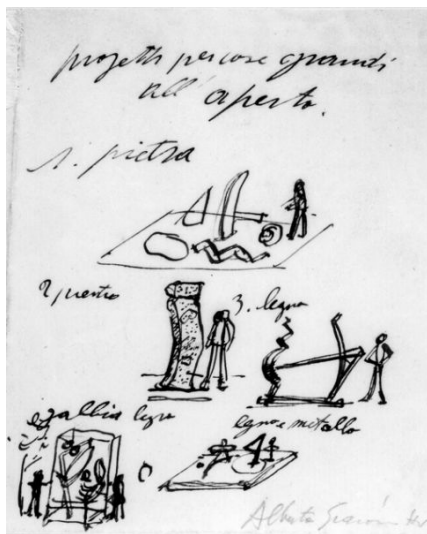 progetti per cose grandi
all' aperto.
1. pietra
2 pietra
3. legno
legno
legno e metallo
Alberto